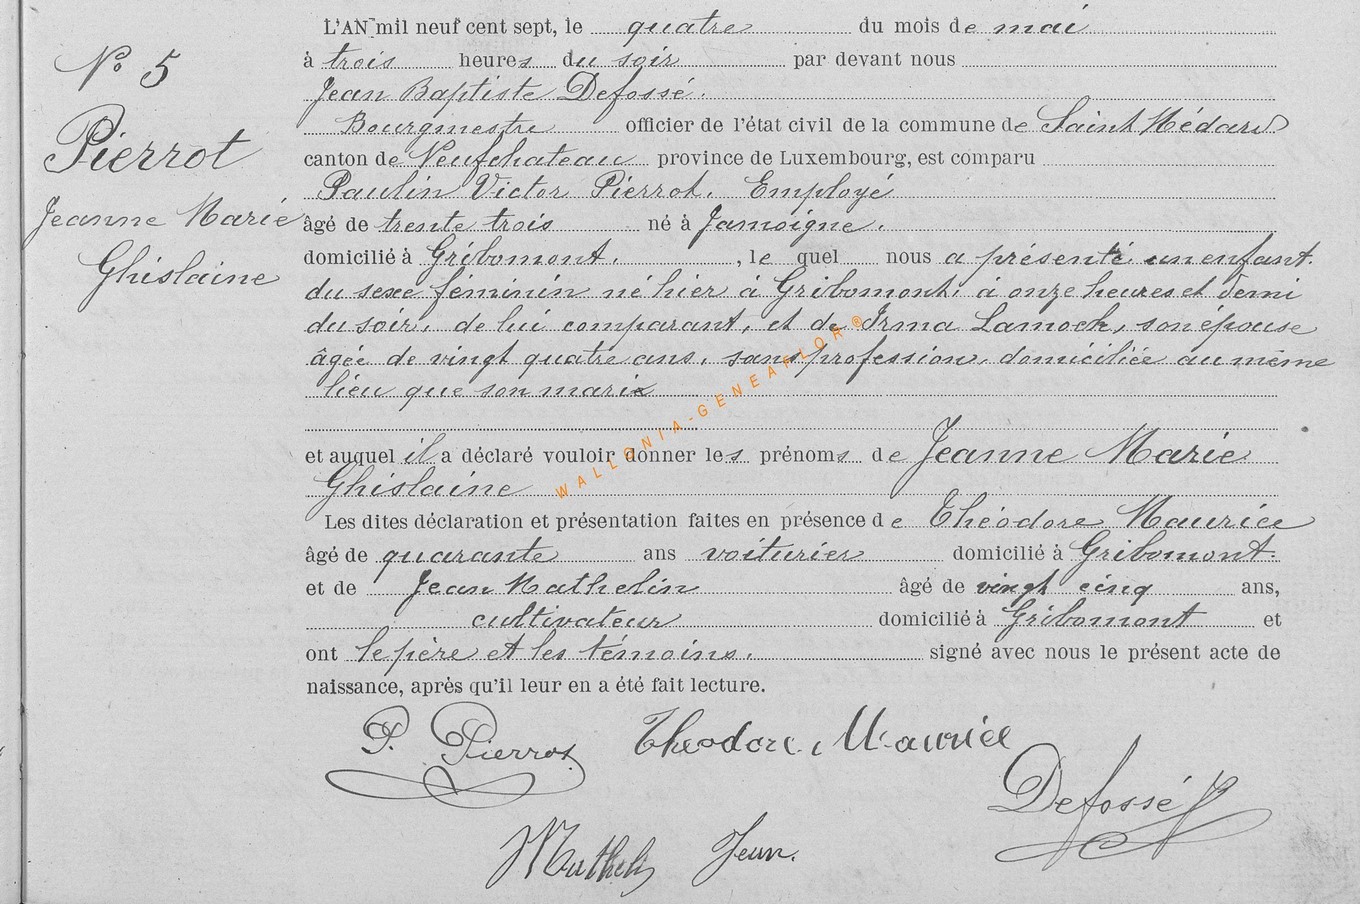 N° 5
Pierrot
Jeanne Marie
Ghislaine
L'AN mil neuf cent sept, le quatre du mois de mai
à trois heures du soir par devant nous
Jean Baptiste Defossé.
Bourgmestre officier de l'état civil de la commune de Saint Médard
canton de Neufchateau province de Luxembourg, est comparu
Paulin Victor Pierrot. Employé
âgé de trente trois né à Jamoigne.
domicilié à Gribomont. , le quel nous a présenté un enfant.
du sexe féminin né hier à Gribomont, à onze heures et demi
du soir, de lui comparant, et de Irma Lamock, son épouse
âgée de vingt quatre ans, sans profession, domiciliée au même
lieu que son mari
WALLONIA-GENEAFLOR®
et auquel il a déclaré vouloir donner les prénoms de Jeanne Marie
Ghislaine
Les dites déclaration et présentation faites en présence de Théodore Maurice
âgé de quarante ans voiturier domicilié à Gribomont
et de Jean Mathelin âgé de vingt cinq ans,
cultivateur domicilié à Gribomont et
ont le père et les témoins. signé avec nous le présent acte de
naissance, après qu'il leur en a été fait lecture.
P. Pierrot Theodore Maurice
Defossé
Mathelin Jean.